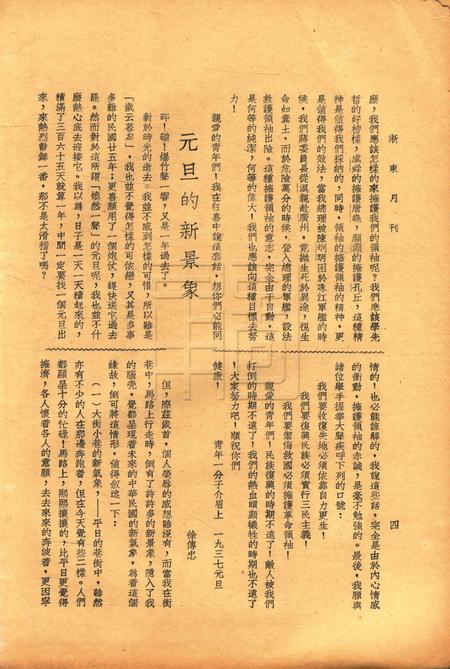 浙東月刊
四
麼,我們應該怎樣的來擁護我們的領袖呢?我們應該學先
哲的好榜樣,虞舜的擁護唐堯,顏淵的擁護孔丘,這種精
神是值得我們採的的,同時,領袖的擁護領袖的精神,更
是值得我們的效法,當我總理被陳炯明困於珠江軍艦的時
候,我們蔣委員長從溪親赴廣州,竟拋生死於異途,視生
命如糞土,而於危險萬分的時候,登入總理的軍艦,設法
救護領袖出險。這種擁護領袖的意志,完全由于自動,這
是何等的純潔,何等的偉大!我們也應該向這種目標去努
力!
親愛的青年們!我在狂喜中說這套話,想你們必能同
情的!也必能諒解的,我說這些話,完全是由於內心情感
的衝動,擁護領袖的赤誠,是毫不勉強的。最後,我願與
諸位舉手握拳大聲疾呼下列的口號:
我們要收復失地必須依靠自力更生!
我們要復興民族必須實行三民主義!
我們要禦侮救國必須擁護革命領袖!
親愛的青年們!民族復興的時期不遠了!敵人被我們
打倒的時期不遠了!我們的熱血頭顱犧牲的時期也不遠了
!大家努力吧!順祝你們
健康! 青年一分子介眉上 一九三七元旦
元旦的新景象
徐傳忠
砰!磞!爆竹聲一響,又是一年過去了。
對於時光的逝去。我並不感到怎樣的可惜,所以雖是
「歲云暮矣」,我也並不覺得怎樣的可依戀,又其是多事
多難的民國廿五年;更喜願用了一個炮仗,趕快送它過去
罷。然而對於這所謂「煥然一聲」的元旦呢,我也並不什
麼熱心底去迎接它。我以為,日子是一天一天積起來的,
積滿了三百六十五天就算一年,中間一定要找一個元旦出
來,來熱烈點舞一番,那不是太滑稽了嗎?
但,際茲歲首,個人榮辱的感想雖沒有,而當我在街
巷中,馬路上行走時,倒有了許許多的新景象,隱入了我
的腦壳,覺都呈現着未來的中華民國的新氣象,爲着這個
緣故,倒可將這情形,值得叙述一下:
(一)大街小巷的新氣象,——平日的巷街中,雖然
亦有不少的人在那邊奔跑着,但在今天覺有些二樣。人們
都顯呈十分的忙碌!馬路上,熙熙攘攘的,比平日更覺得
擁濟,各人懷着各人的意願,去去來來的奔波着,更因寧